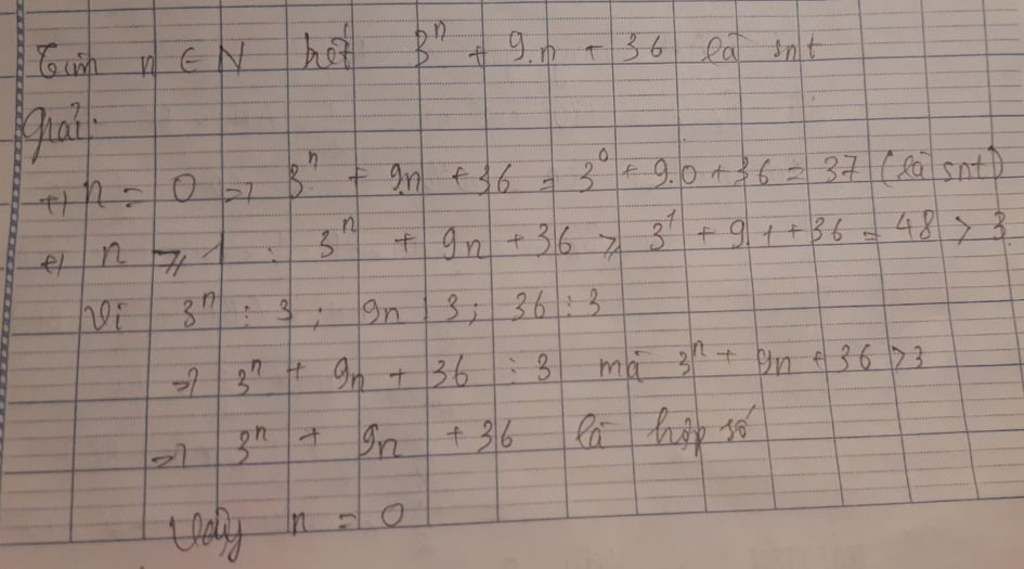 Tìm n ∈ N biết 3^n + 9.n + 36 là snt
Giải:
+) n = 0 => 3^n + 9n + 36 = 3^0 + 9.0 + 36 = 37 (là snt)
+) n ⩾ 1 : 3^n + 9n + 36 ⩾ 3^1 + 9.1 + 36 = 48 > 3
Vì 3^n ⋮ 3 ; 9n ⋮ 3 ; 36 ⋮ 3
=> 3^n + 9n + 36 ⋮ 3 mà 3^n + 9n + 36 > 3
=> 3^n + 9n + 36 là hợp số
Vậy n = 0